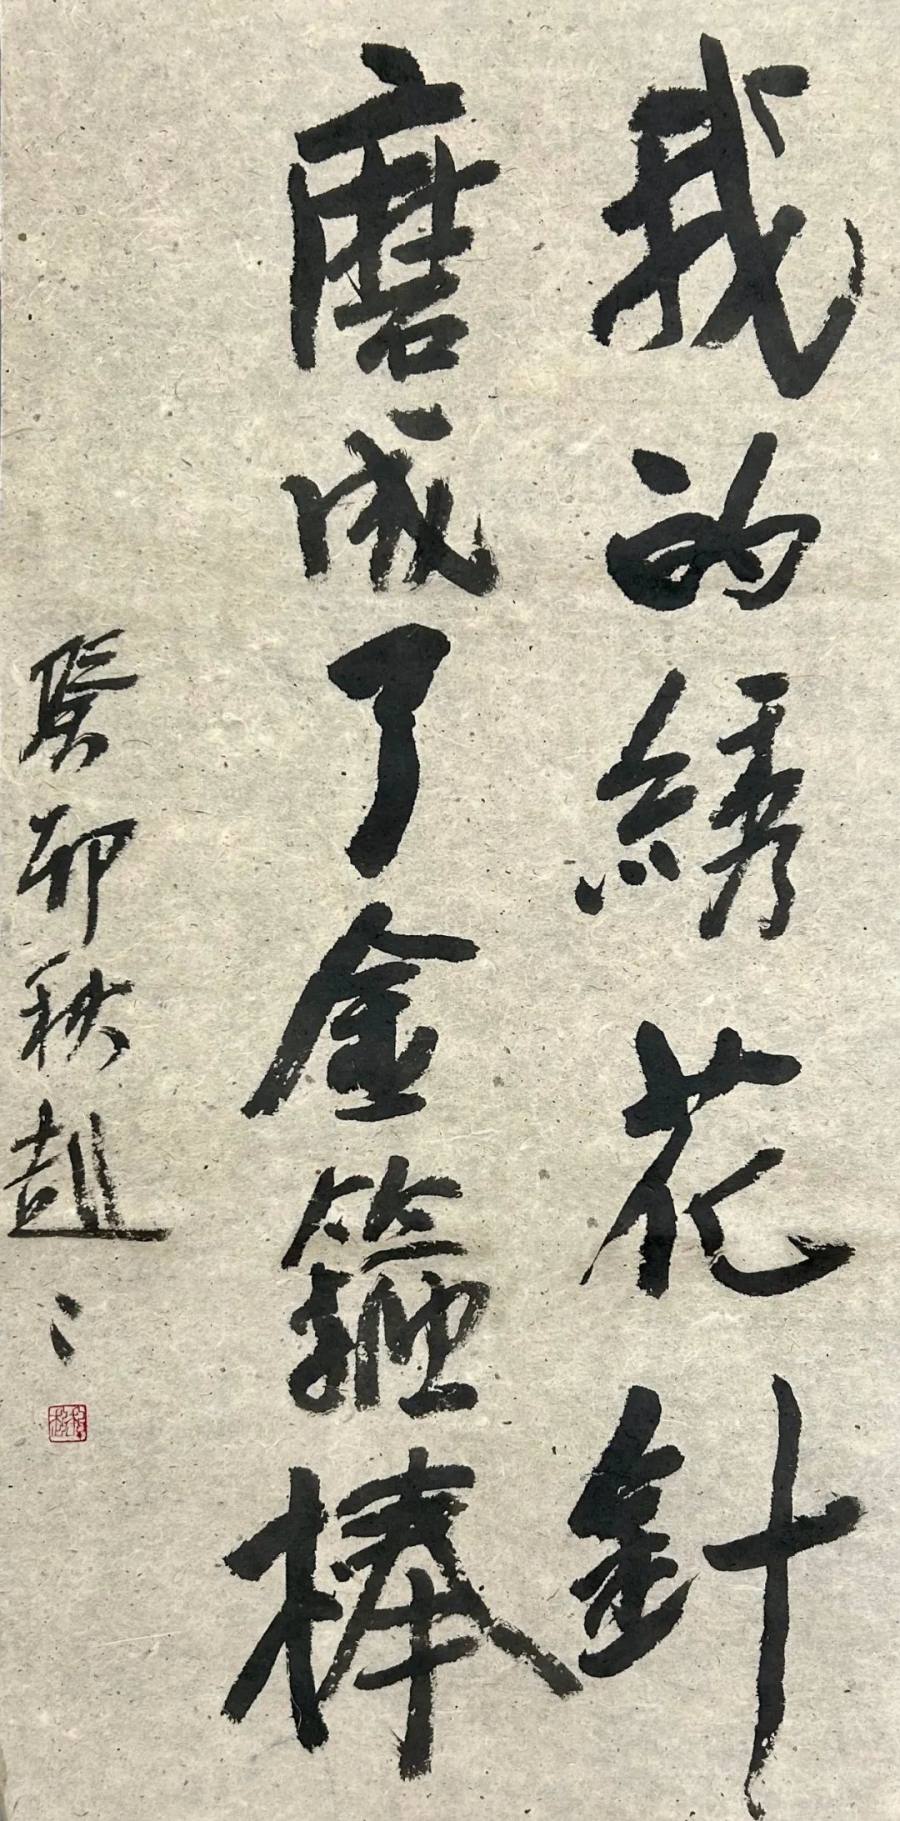 我的綉花針
磨成了金箍棒
癸卯秋趙〻